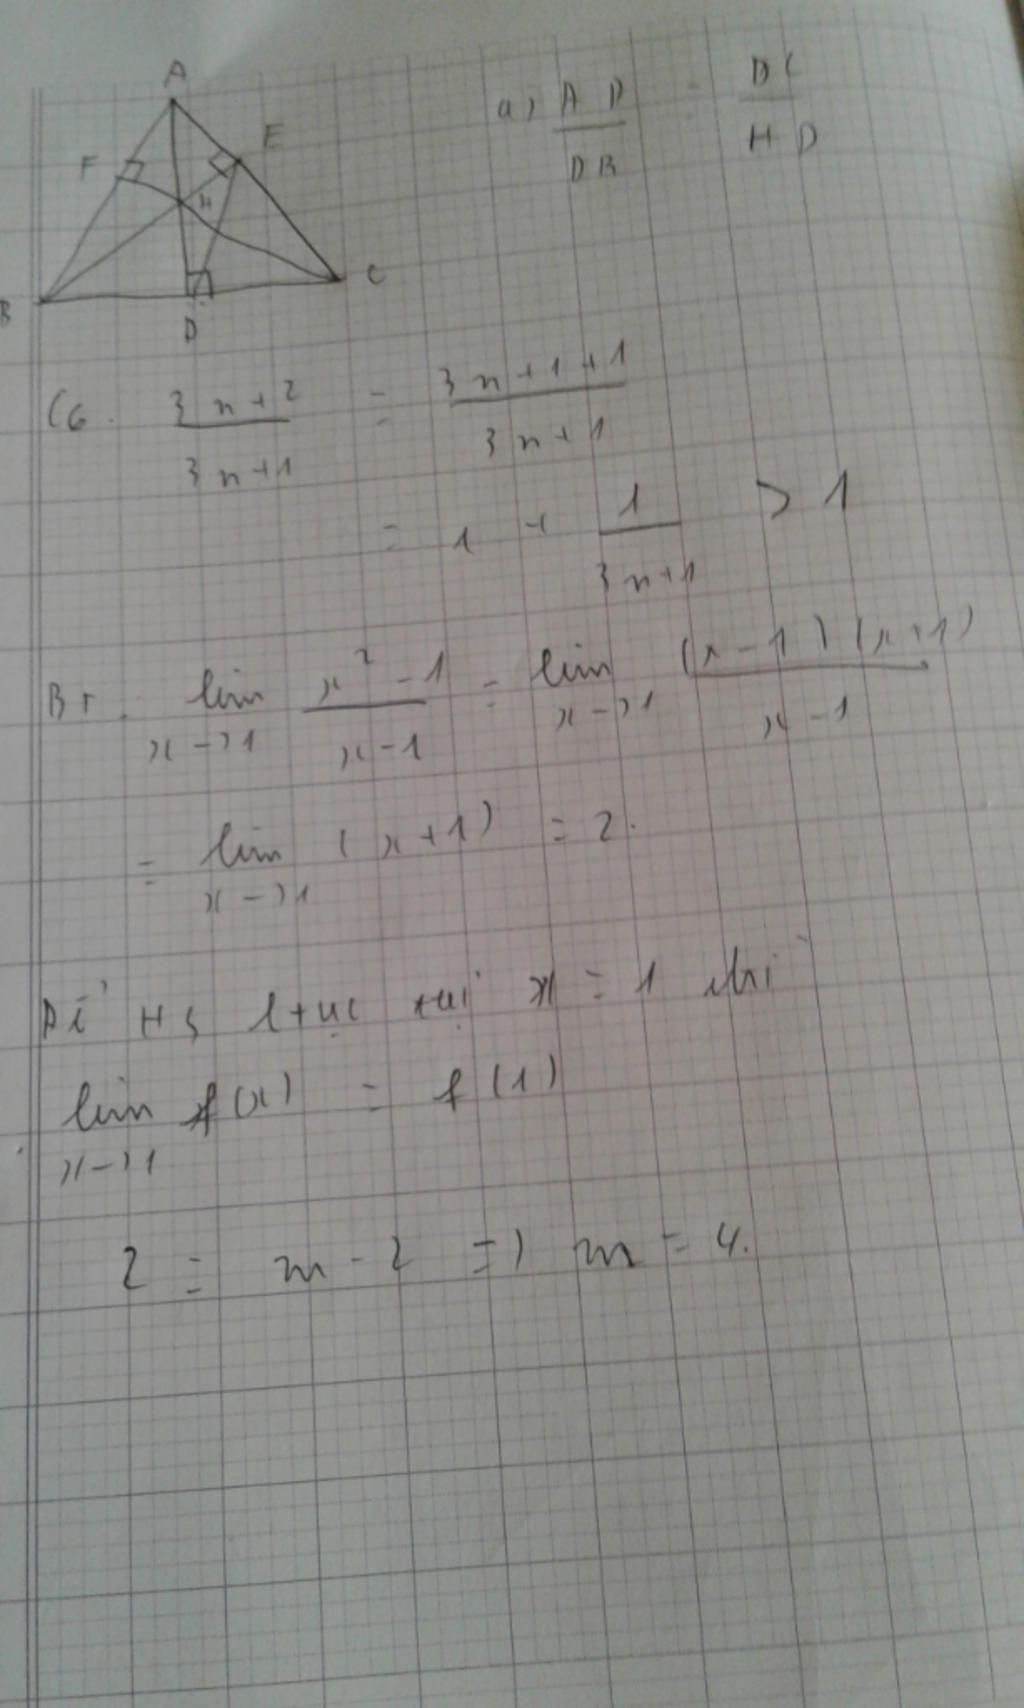 A
F E
H
B D C
a) AD/DB = DC/HD
C6. (3n+2)/(3n+1) = (3n+1+1)/(3n+1)
= 1 + 1/(3n+1) > 1
lim x->1 (x²-1)/(x-1) = lim x->1 (x-1)(x+1)/(x-1)
= lim x->1 (x+1) = 2.
HS ltục tại x = 1 khi
lim x->1 f(x) = f(1)
2 = m - 2 => m = 4.